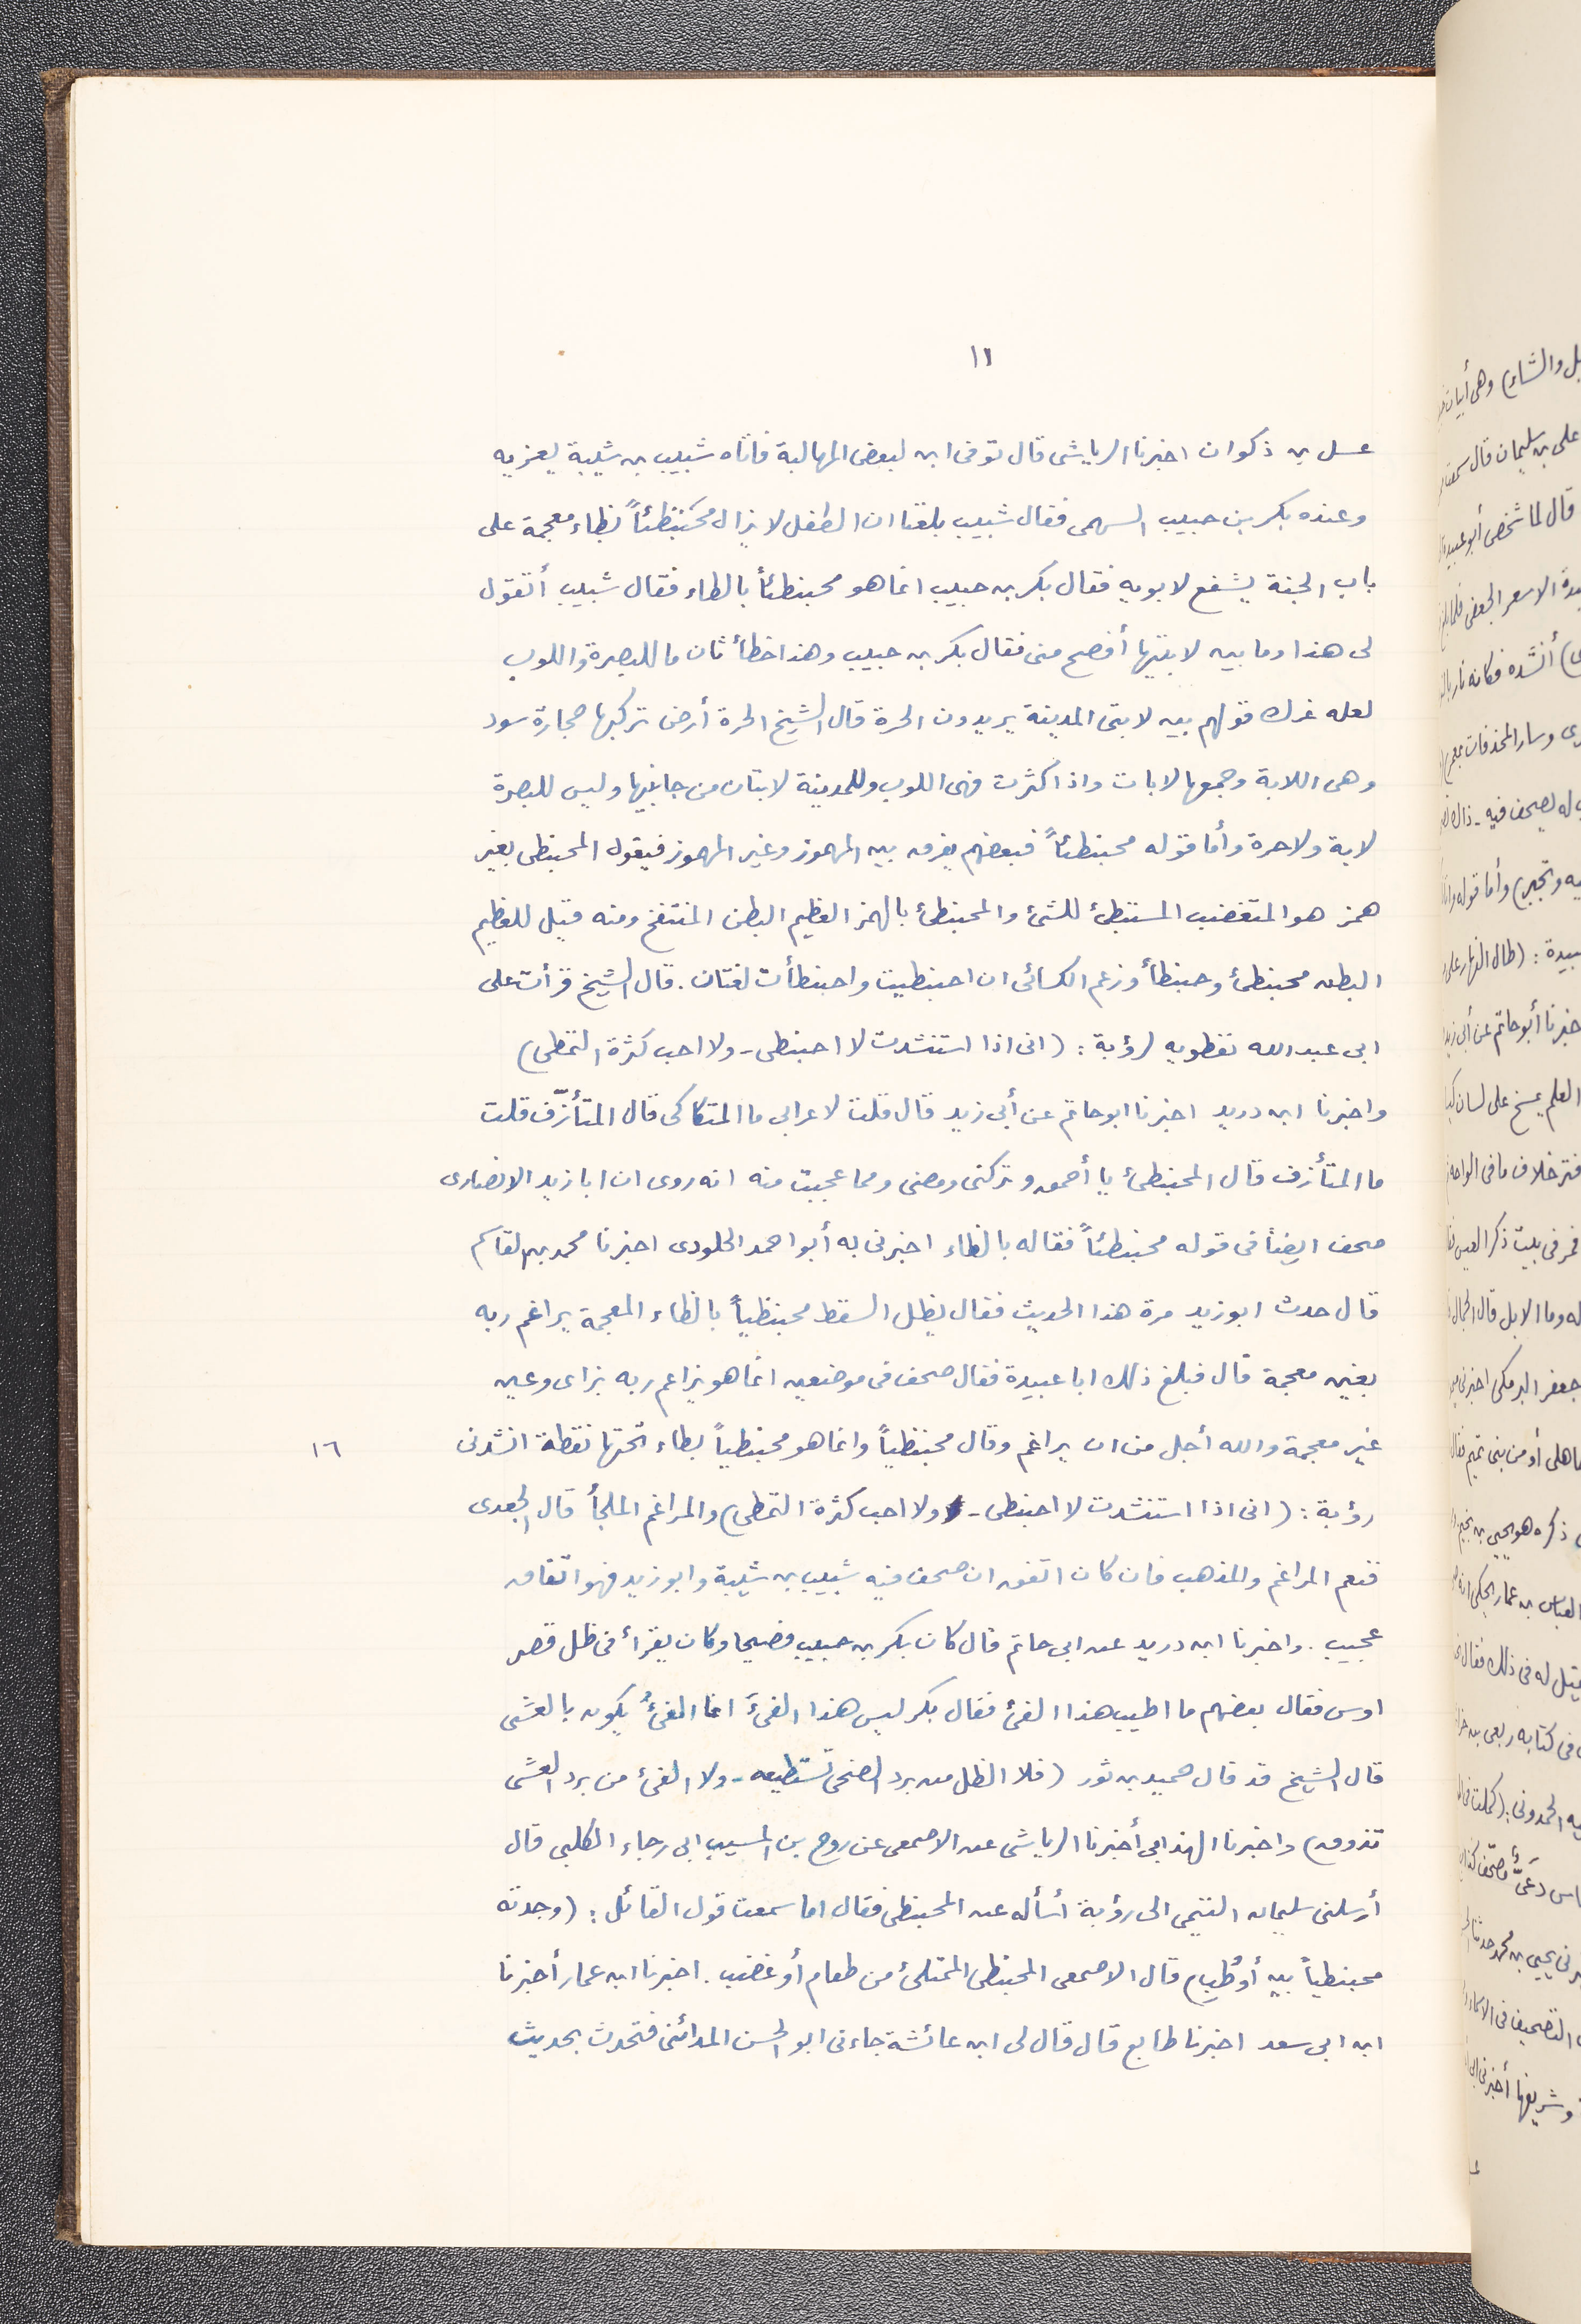 ١١
عسل بن ذكوان اخبرنا الرياشى قال توفى ابن لبعض المهالبة فأتاه شبيب بن شيبة يعزيه
وعنده بكر بن حبيب السهمى فقال شبيب بلغنا ان الطفل لا يزال محبنظئاً بظاء معجمة على
باب الجنة يشفع لابويه فقال بكر بن حبيب انما هو محبنطئاً بالطاء فقال شبيب أتقول
لى هذا وما بين لابتيها أفصح منى فقال بكر بن حبيب وهذا خطأ ثان ما للبصرة واللوب
لعله غرك قولهم بين لابتى المدينة يريدون الحرة قال الشيخ الحرة أرض تركبها حجارة سود
وهى اللابة وجمعها لابات واذا كثرت فهى اللوب وللمدينة لابتان من جانبيها وليس للبصرة
لابة ولا حرة وأما قوله محبنطئاً فبعضهم يفرق بين المهموز وغير المهموز فيقول المحبنطى بغير
همز هو المتغضب المستبطئ للشئ والمحبنطئ بالهمز العظيم البطن المنتفخ ومنه قيل للعظيم
البطن محبنطئ وحبنطأ وزعم الكسائى ان احبنطيت واحبنطأت لغتان. قال الشيخ قرأت على
ابى عبد الله نفطويه لرؤبة: (انى اذا استنشدت لا احبنطى - ولا احب كثرة التمطى)
واخبرنا ابن دريد اخبرنا ابو حاتم عن أبى زيد قال قلت لاعرابى ما المتكاكى قال المتأزّف قلت
ما المتأزف قال المحبنطئ يا أحمق وتركنى ومضى ومما عجبت منه انه روى ان ابا زيد الانصارى
صحف ايضاً فى قوله محبنطئاً فقاله بالظاء اخبرنى به أبو احمد الجلودى اخبرنا محمد بن القاسم
قال حدث ابو زيد مرة هذا الحديث فقال يظل السقط محبنظياً بالظاء المعجمة يراغم ربه
بغين معجمة قال فبلغ ذلك ابا عبيدة فقال صحف فى موضعين انما هو يزاعم ربه بزاى وعين
غير معجمة والله أجل من ان يراغم وقال محبنظياً وانما هو محبنطياً بطاء تحتها نقطة انشدنى
١٦
رؤبة: (انى اذا استنشدت لا احبنطى - ولا احب كثرة التمطى) والمراغم الملجأ قال الجعدى
فنعم المراغم والمذهب فان كان اتفق ان صحف فيه شبيب بن شيبة وابو زيد فهو اتفاق
عجيب. واخبرنا ابن دريد عن ابى حاتم قال كان بكر بن حبيب فصيحا وكان يقرأ فى ظل قصر
اوس فقال بعضهم ما اطيب هذا الفئ فقال بكر ليس هذا الفئَ انما الفئُ يكون بالعشى
قال الشيخ قد قال حميد بن ثور (فلا الظل من برد الضحى تستطيعه - ولا الفئ من برد العشى
تذوق) واخبرنا الهذابى أخبرنا الرياشى عن الاصمعى عن روح بن المسيب ابى رجاء الكلبى قال
أرسلنى سليمان التيمى الى رؤبة أسأله عن المحبنطى فقال اما سمعت قول القائل: (وجدته
محبنطياً بين أوطُب) قال الاصمعى المحبنطى الممتلئ من طعام أو غضب. اخبرنا ابن عمار أخبرنا
ابن ابى سعد اخبرنا طايع قال قال لى ابن عائشة جاءنى ابو الحسن المدائنى فتحدث بحديث